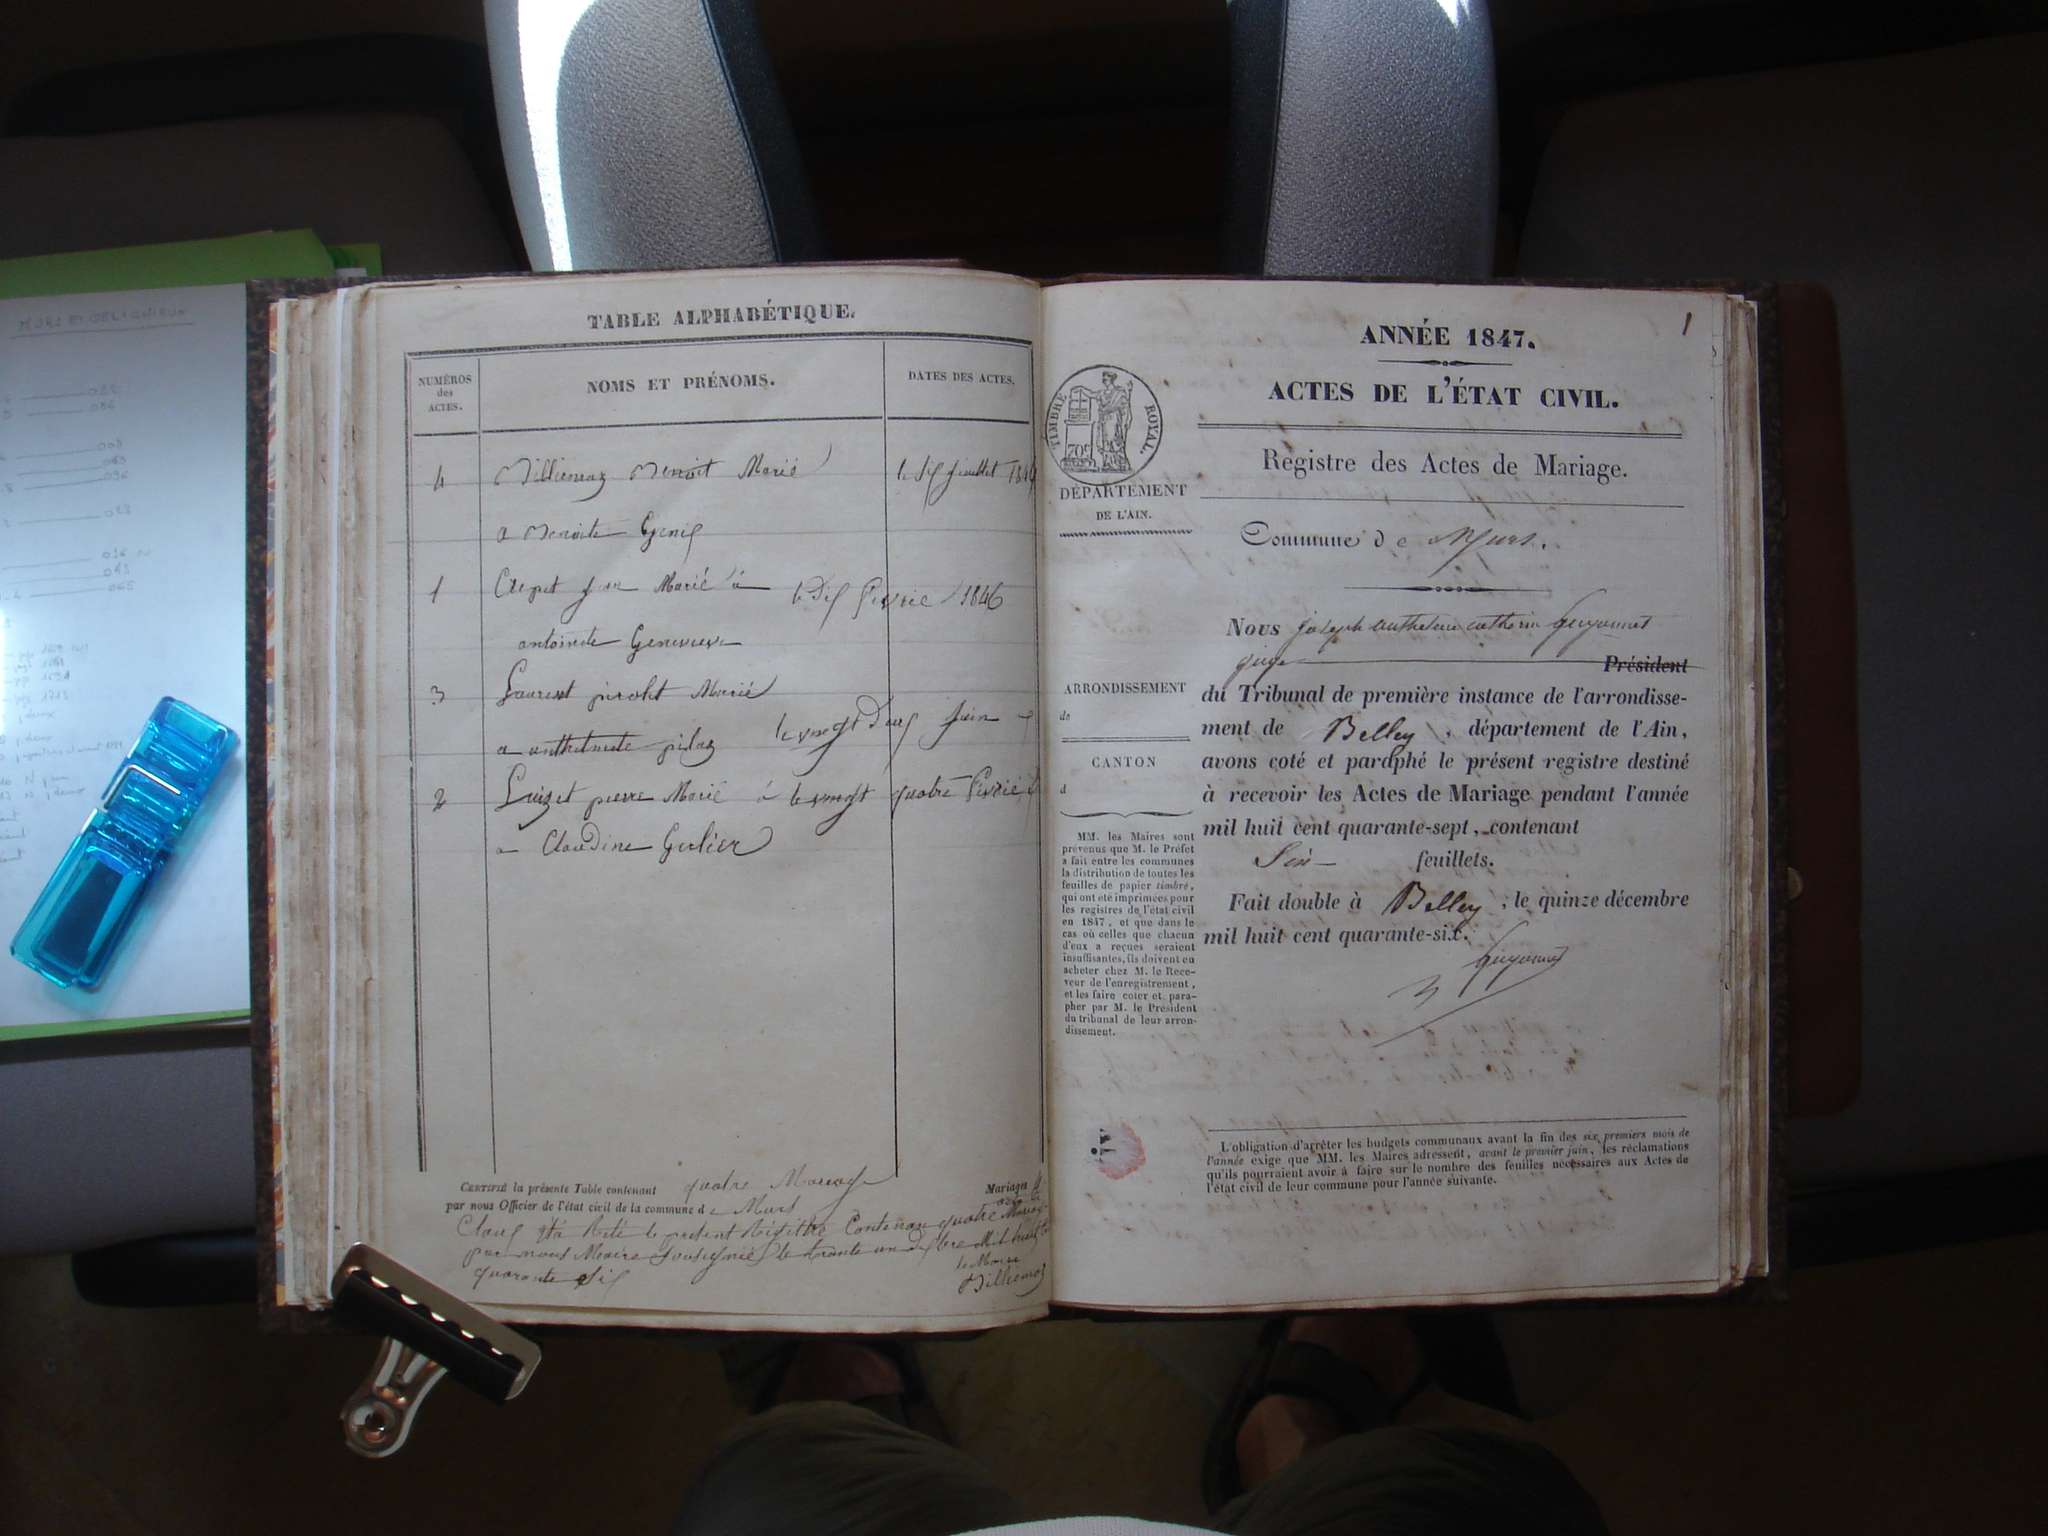 TABLE ALPHABÉTIQUE.
NUMÉROS
des
ACTES.
NOMS ET PRÉNOMS.
DATES DES ACTES.
4 Billiemaz Benoit Marié le dix juillet 1846
a Benoite Genix
1 Crepet jean Marié à le Dix fevrie 1846
antoinete Genevieve
3 Laurent Marié
a anthelmete pilaz le vingt Deux Juin
2 Luizet pierre Marié à le vingt quatre fevrié
a Claudine
CERTIFIÉ la présente Table contenant quatre Mariage
par nous Officier de l'état civil de la commune de Murs
Mariages 4
Clous le present Contenan quatre
par nous Maire sousignié le trante un Mil huit
quarante six
le Maire
Billiemaz
1
ANNÉE 1847.
ACTES DE L'ÉTAT CIVIL.
TIMBRE ROYAL.
Registre des Actes de Mariage.
DÉPARTEMENT
DE L'AIN.
Commune de Murs.
Nous joseph anthelme catherin Guyonnet
juge Président
du Tribunal de première instance de l'arrondisse-
ment de Belley, département de l'Ain,
avons coté et paraphé le présent registre destiné
à recevoir les Actes de Mariage pendant l'année
mil huit cent quarante-sept, contenant
feuillets.
Fait double à Belley, le quinze décembre
mil huit cent quarante-six.
Guyonnet
ARRONDISSEMENT
de
CANTON
d
MM. les Maires sont
prévenus que M. le Préfet
a fait entre les communes
la distribution de toutes les
feuilles de papier timbré,
qui ont été imprimées pour
les registres de l'état civil
en 1847, et que dans le
cas où celles que chacun
d'eux a reçues seraient
insuffisantes, ils doivent en
acheter chez M. le Rece-
veur de l'enregistrement,
et les faire coter et para-
pher par M. le Président
du tribunal de leur arron-
dissement.
L'obligation d'arrêter les budgets communaux avant la fin des six premiers mois de
l'année exige que MM. les Maires adressent, avant le premier juin, les réclamations
qu'ils pourraient avoir à faire sur le nombre des feuilles nécessaires aux Actes de
l'état civil de leur commune pour l'année suivante.